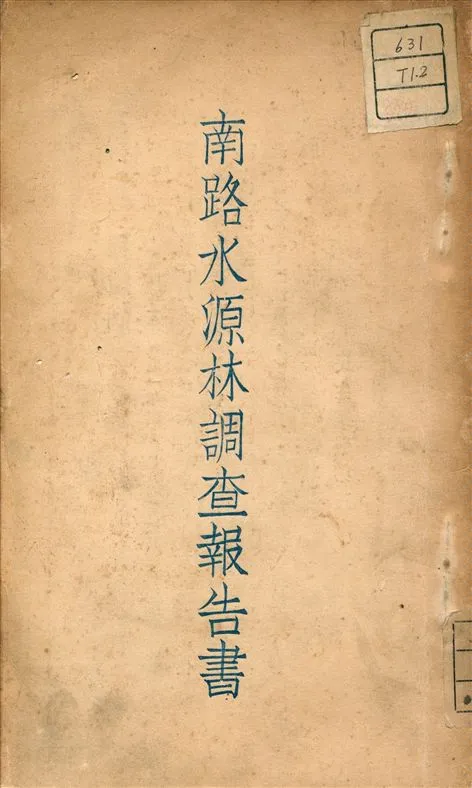 南路水源林調查報告書
631
T1.2